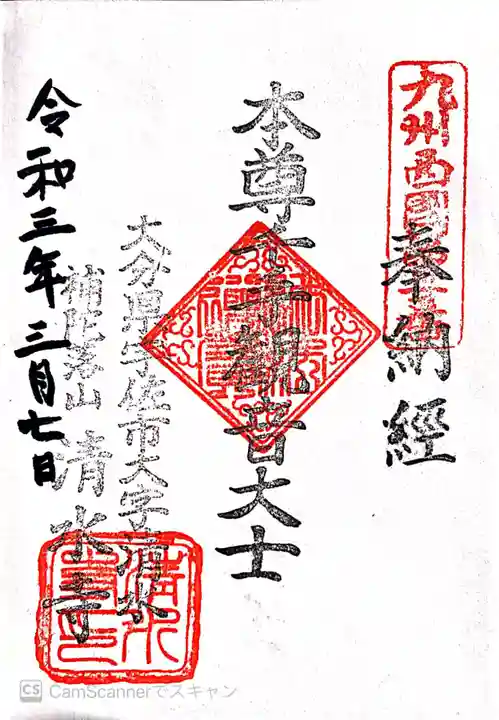 九州西国
奉納經
本尊千手觀音大士
大分県宇佐市大字清水
補陀落山 清水寺
令和三年三月七日
CS CamScannerでスキャン